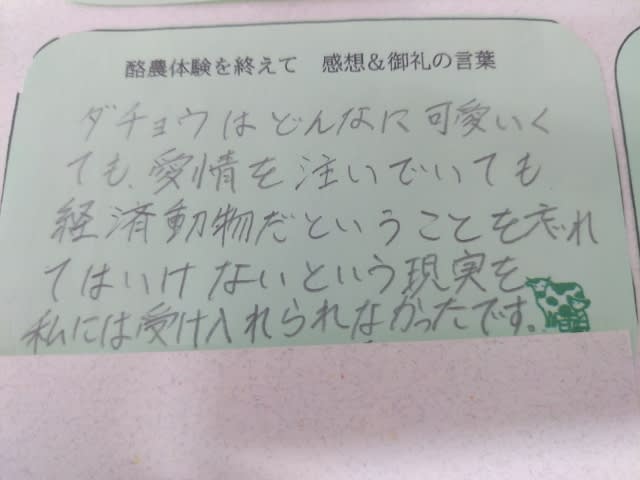 酪農体験を終えて 感想&御礼の言葉
ダチョウはどんなに可愛いく
ても、愛情を注いでいても
経済動物だということを忘れ
てはいけないという現実を
私には受け入れられなかったです。